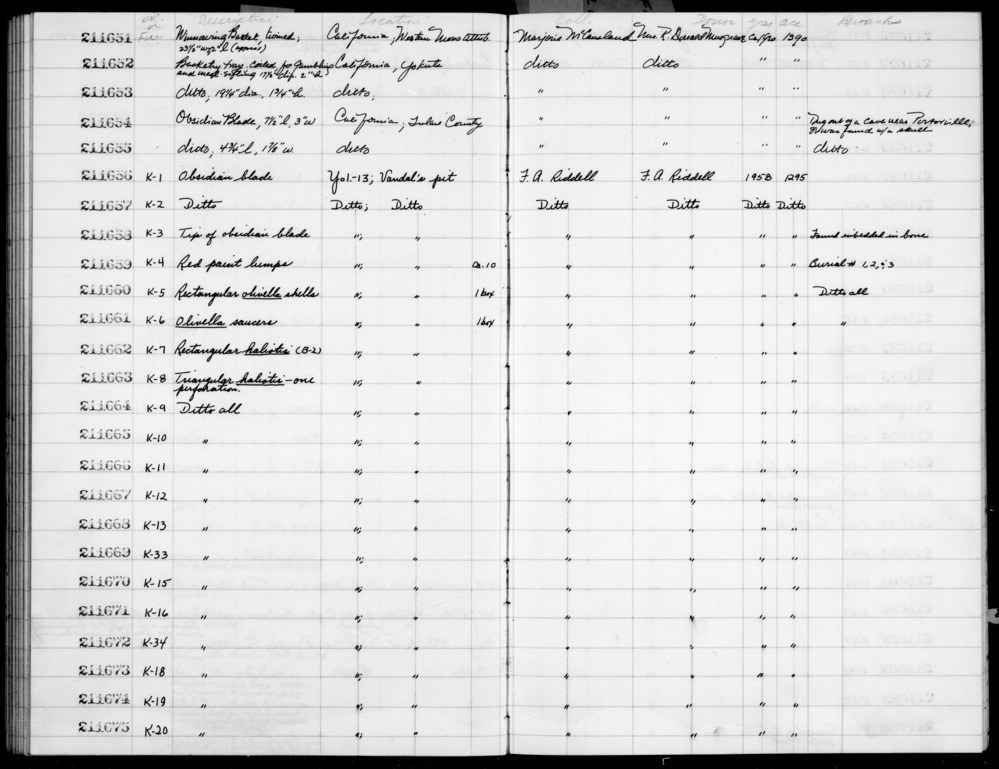 or. or Description Location Coll. Donor year acc Remarks
211651 Winnowing Basket, twined; California; Western Mono Attrib. Marjorie McCausland Mrs. R. Musgrave 1390
23½"w, 2"h (approx)
211652 Basketry tray, coiled, for gambling California, Yokuts ditto ditto " "
and meal sifting 17½" dia. 2"h
211653 ditto, 19¼" dia. 1¾"h. ditto; " " " "
211654 Obsidian Blade, 7½"l, 3"w California; Tulare County " " " " Dug out of a cave near Porterville;
was found w/a skull
211655 ditto, 4¾"l, 1⅞"w ditto " " " " ditto
211656 K-1 Obsidian blade Yol-13; Vandal's pit F.A. Riddell F.A. Riddell 1958 1295
211657 K-2 Ditto Ditto; Ditto Ditto Ditto Ditto Ditto
211658 K-3 Tip of obsidian blade "; " " " " " Found imbedded in bone
211659 K-4 Red paint lumps "; " Ca. 10 " " " " Burial # 1, 2, & 3
211660 K-5 Rectangular olivella shells "; " 1 box " " " " Ditto all
211661 K-6 Olivella saucers "; " 1 box " " " " "
211662 K-7 Rectangular haliotis (B-2) "; " " " " "
211663 K-8 Triangular haliotis - one "; " " " " "
perforation.
211664 K-9 Ditto all "; " " " " "
211665 K-10 " "; " " " " "
211666 K-11 " "; " " " " "
211667 K-12 " "; " " " " "
211668 K-13 " "; " " " " "
211669 K-33 " "; " " " " "
211670 K-15 " "; " " " " "
211671 K-16 " "; " " " " "
211672 K-34 " "; " " " " "
211673 K-18 " "; " " " " "
211674 K-19 " "; " " " " "
211675 K-20 " "; " " " " "